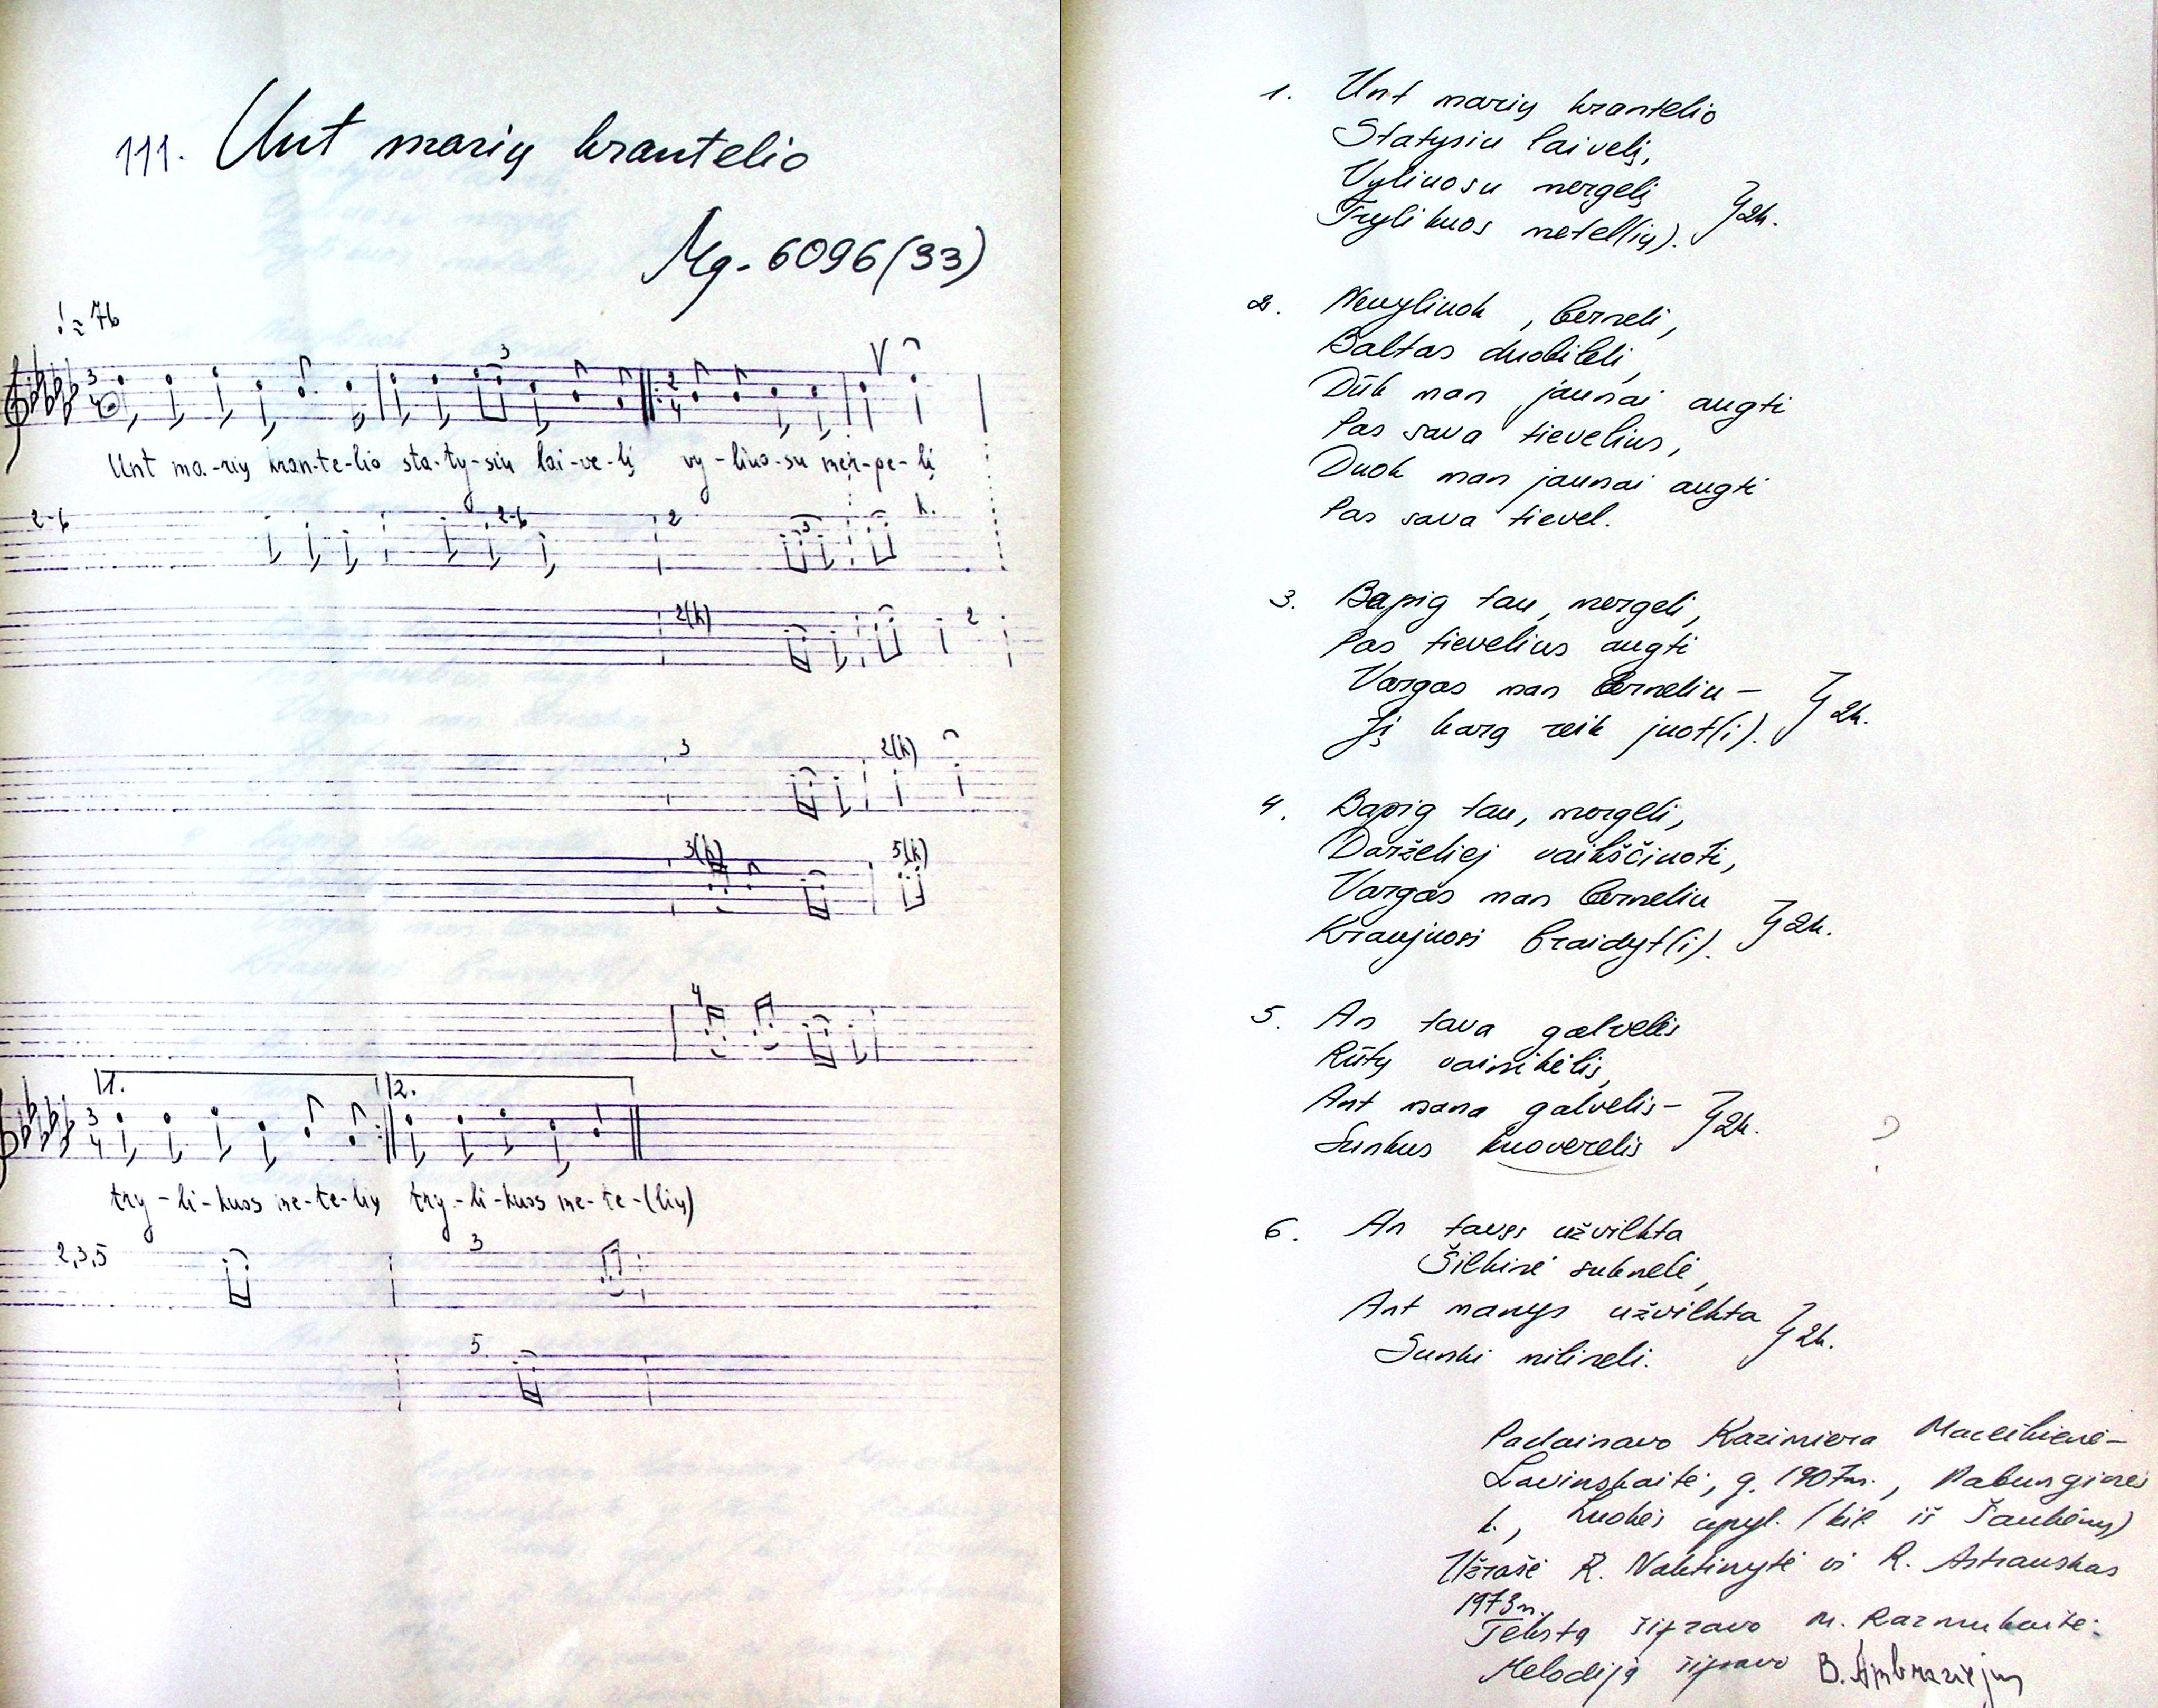 111. Unt marių krantelio
Mg. 6096(33)
≈ 76
3
3
4
2
4
V
Unt ma-rių kran-te-lio sta-ty-siu lai-ve-lį vy-liuo-su mer-ge-lį
2-6
2-6
2
3
k.
2(k)
2
3
2(k)
3(k)
5(k)
4
1.
2.
3
4
try-li-kuos me-te-lių try-li-kuos me-te-(lių)
2,3,5
3
5
1. Unt marių krantelio
Statysiu laivelį,
Vyliuosu mergelį
Trylikuos metel(ių). }2k.
2. Nevyliuok, berneli,
Baltas duobilėli,
Dūk man jaunai augti
Pas sava tievelius,
Duok man jaunai augti
Pas sava tievel.
3. Bapig tau, mergeli,
Pas tievelius augti
Vargas man berneliu –
Jį karą reik juot(i). }2k.
4. Bapig tau, mergeli,
Darželiej vaikščiuoti,
Vargas man berneliu
Kraujuosi braidyt(i). }2k.
5. An tava galvelis
Rūtų vainikėlis,
Ant mana galvelis –
Sunkus kuoverelis }2k.
?
6. An tavęs užvilkta
Šilkinė suknelė,
Ant manys užvilkta
Sunki milineli. }2k.
Padainavo Kazimiera
Lavinskaitė, g. 1907m.,
k., Luokės apyl. (kil. iš Šaukėnų)
Užrašė R. Naktinytė ir R. Astrauskas
1973m.
Tekstą šifravo M. Razmukaitė.
Melodiją šifravo B. Ambraziejus